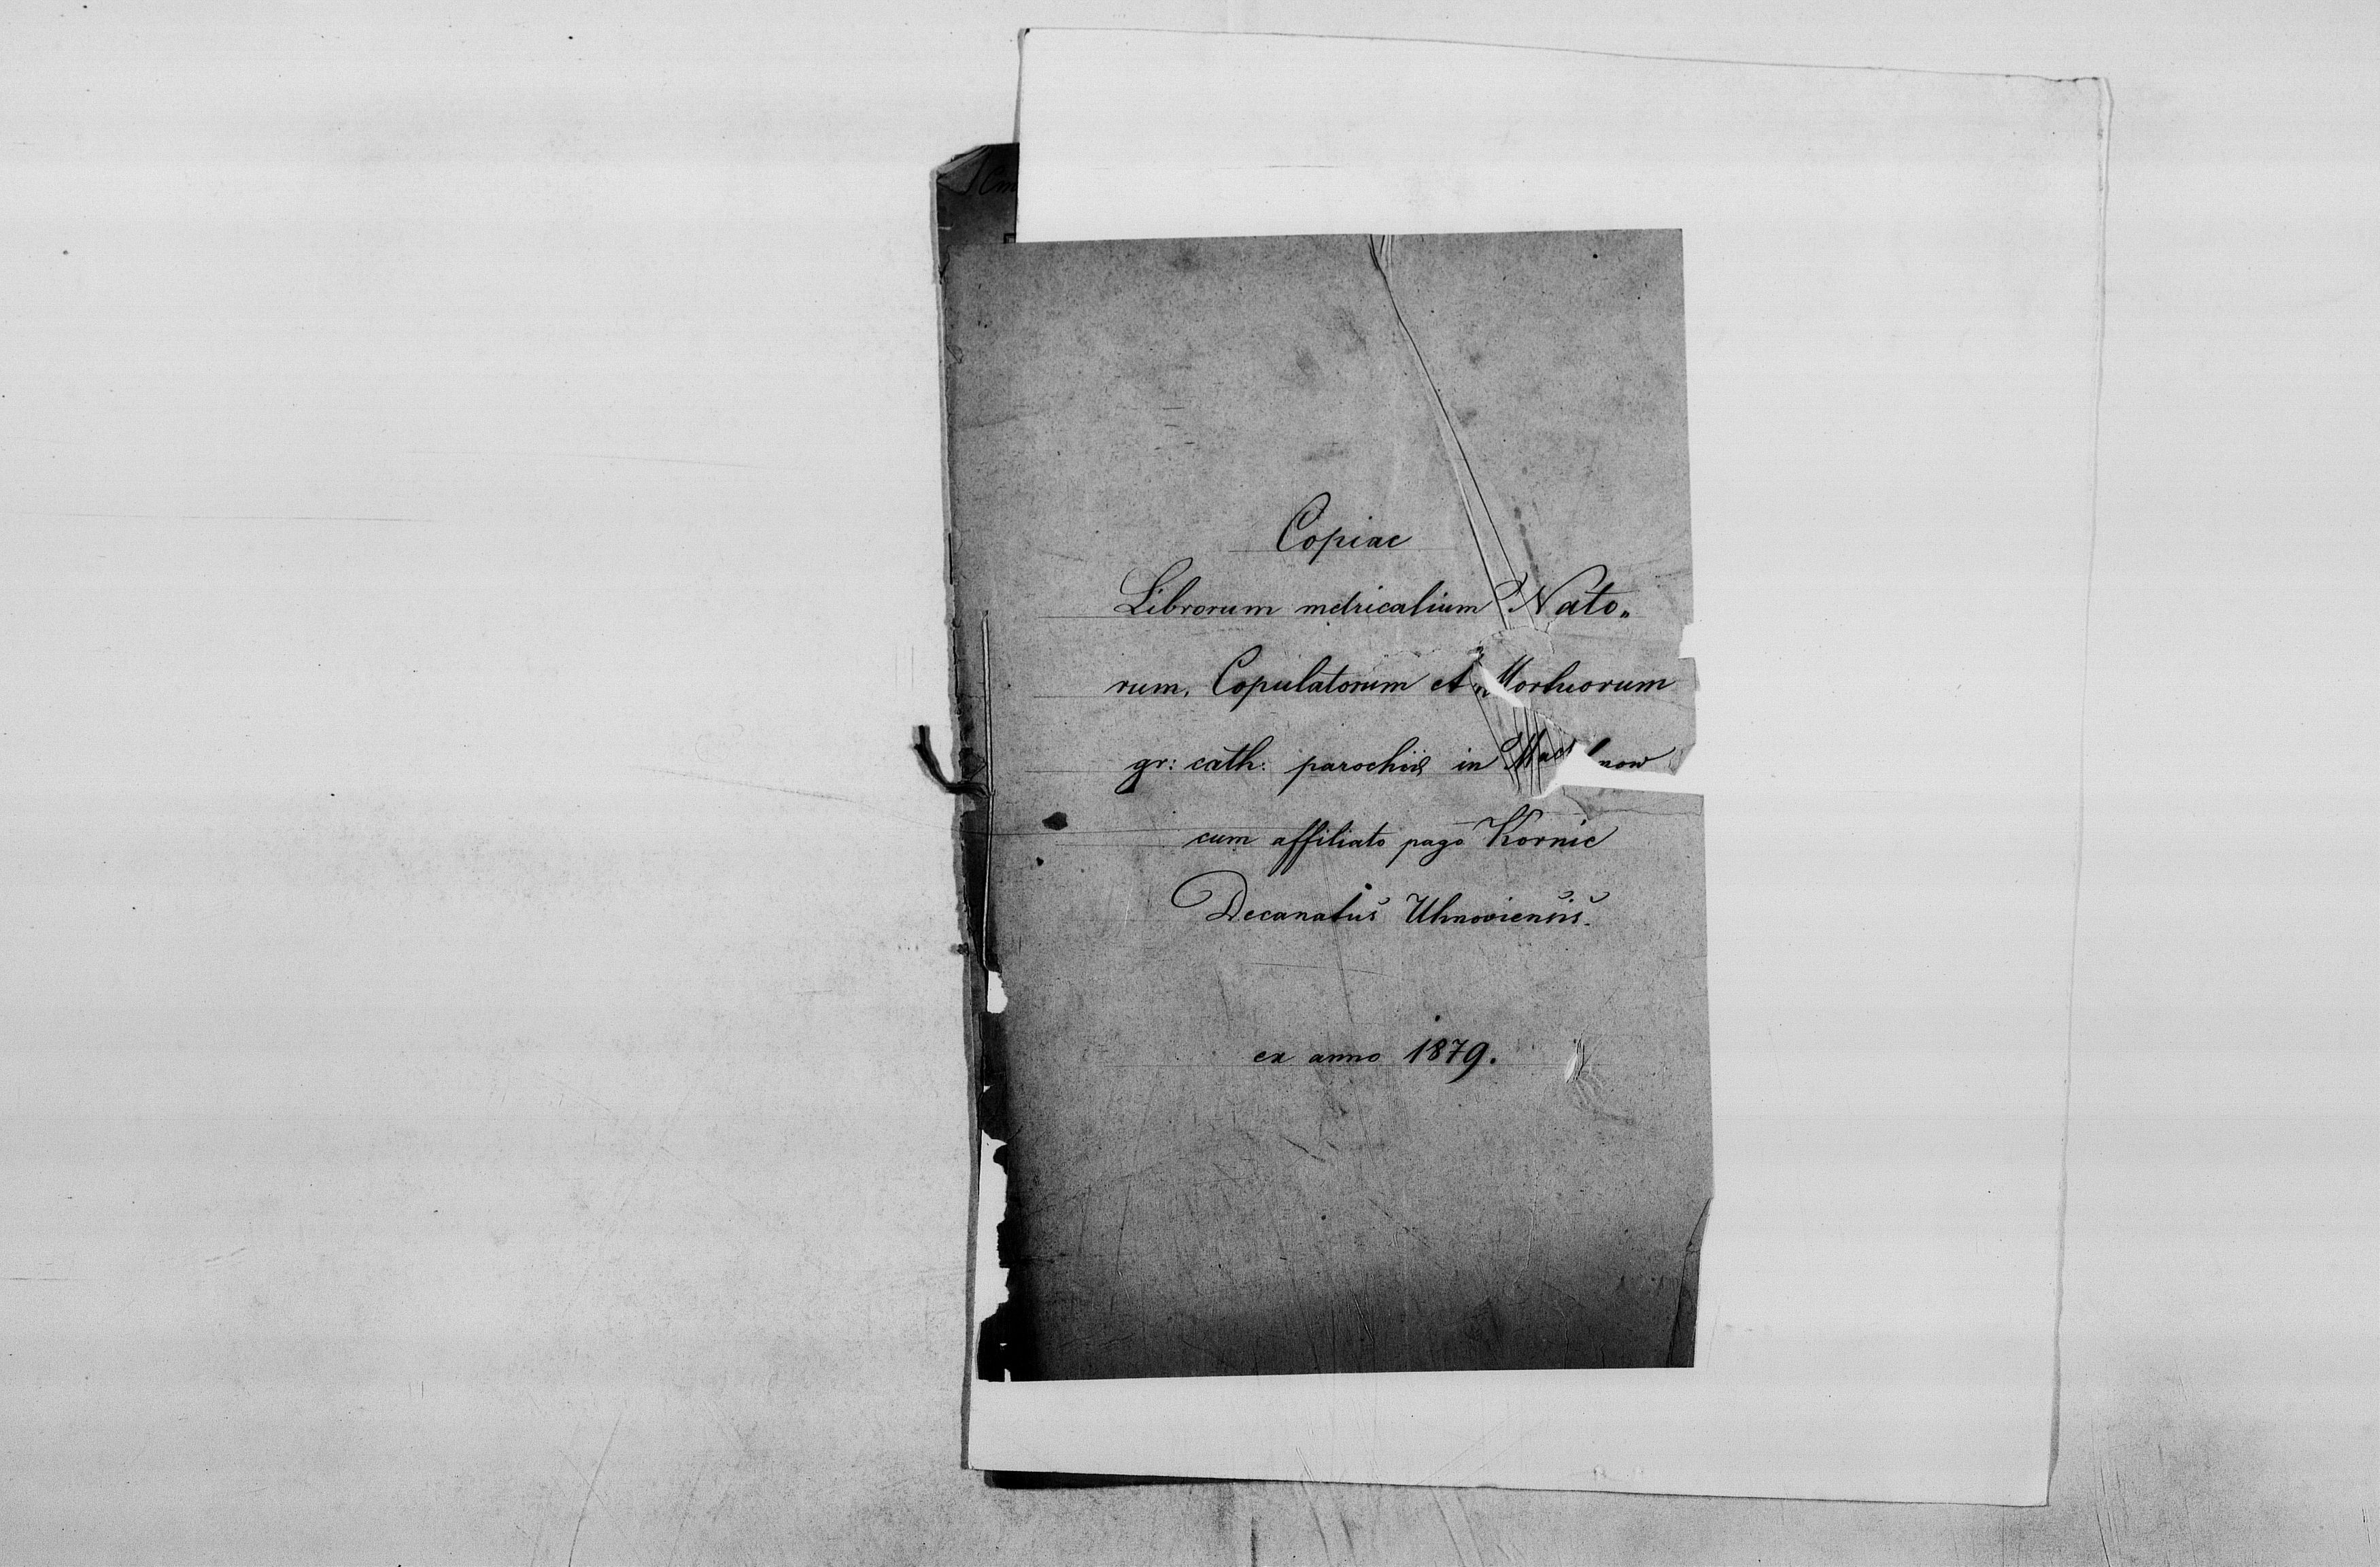 Copiae
Librorum metricalium Nato„
rum, Copulatorum et Mortuorum
gr: cath: parochiæ in Mach now
cum affiliato pago Kornie
Decanatus Uhnoviensis.
ex anno 1879.